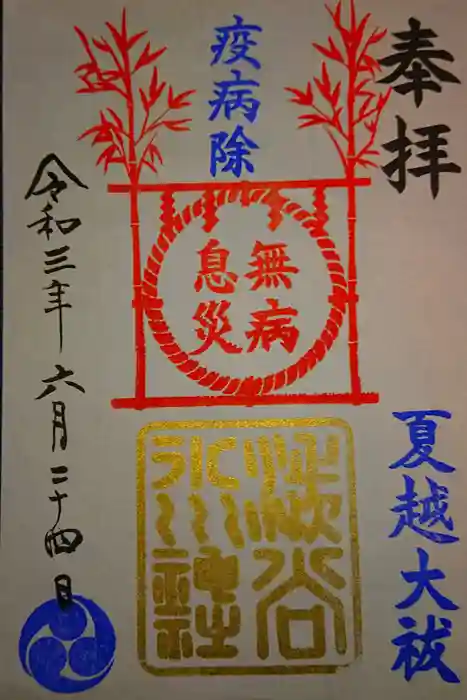 奉拝
夏越大祓
疫病除
無病
息災
谷
氷川神社
令和三年六月二十四日